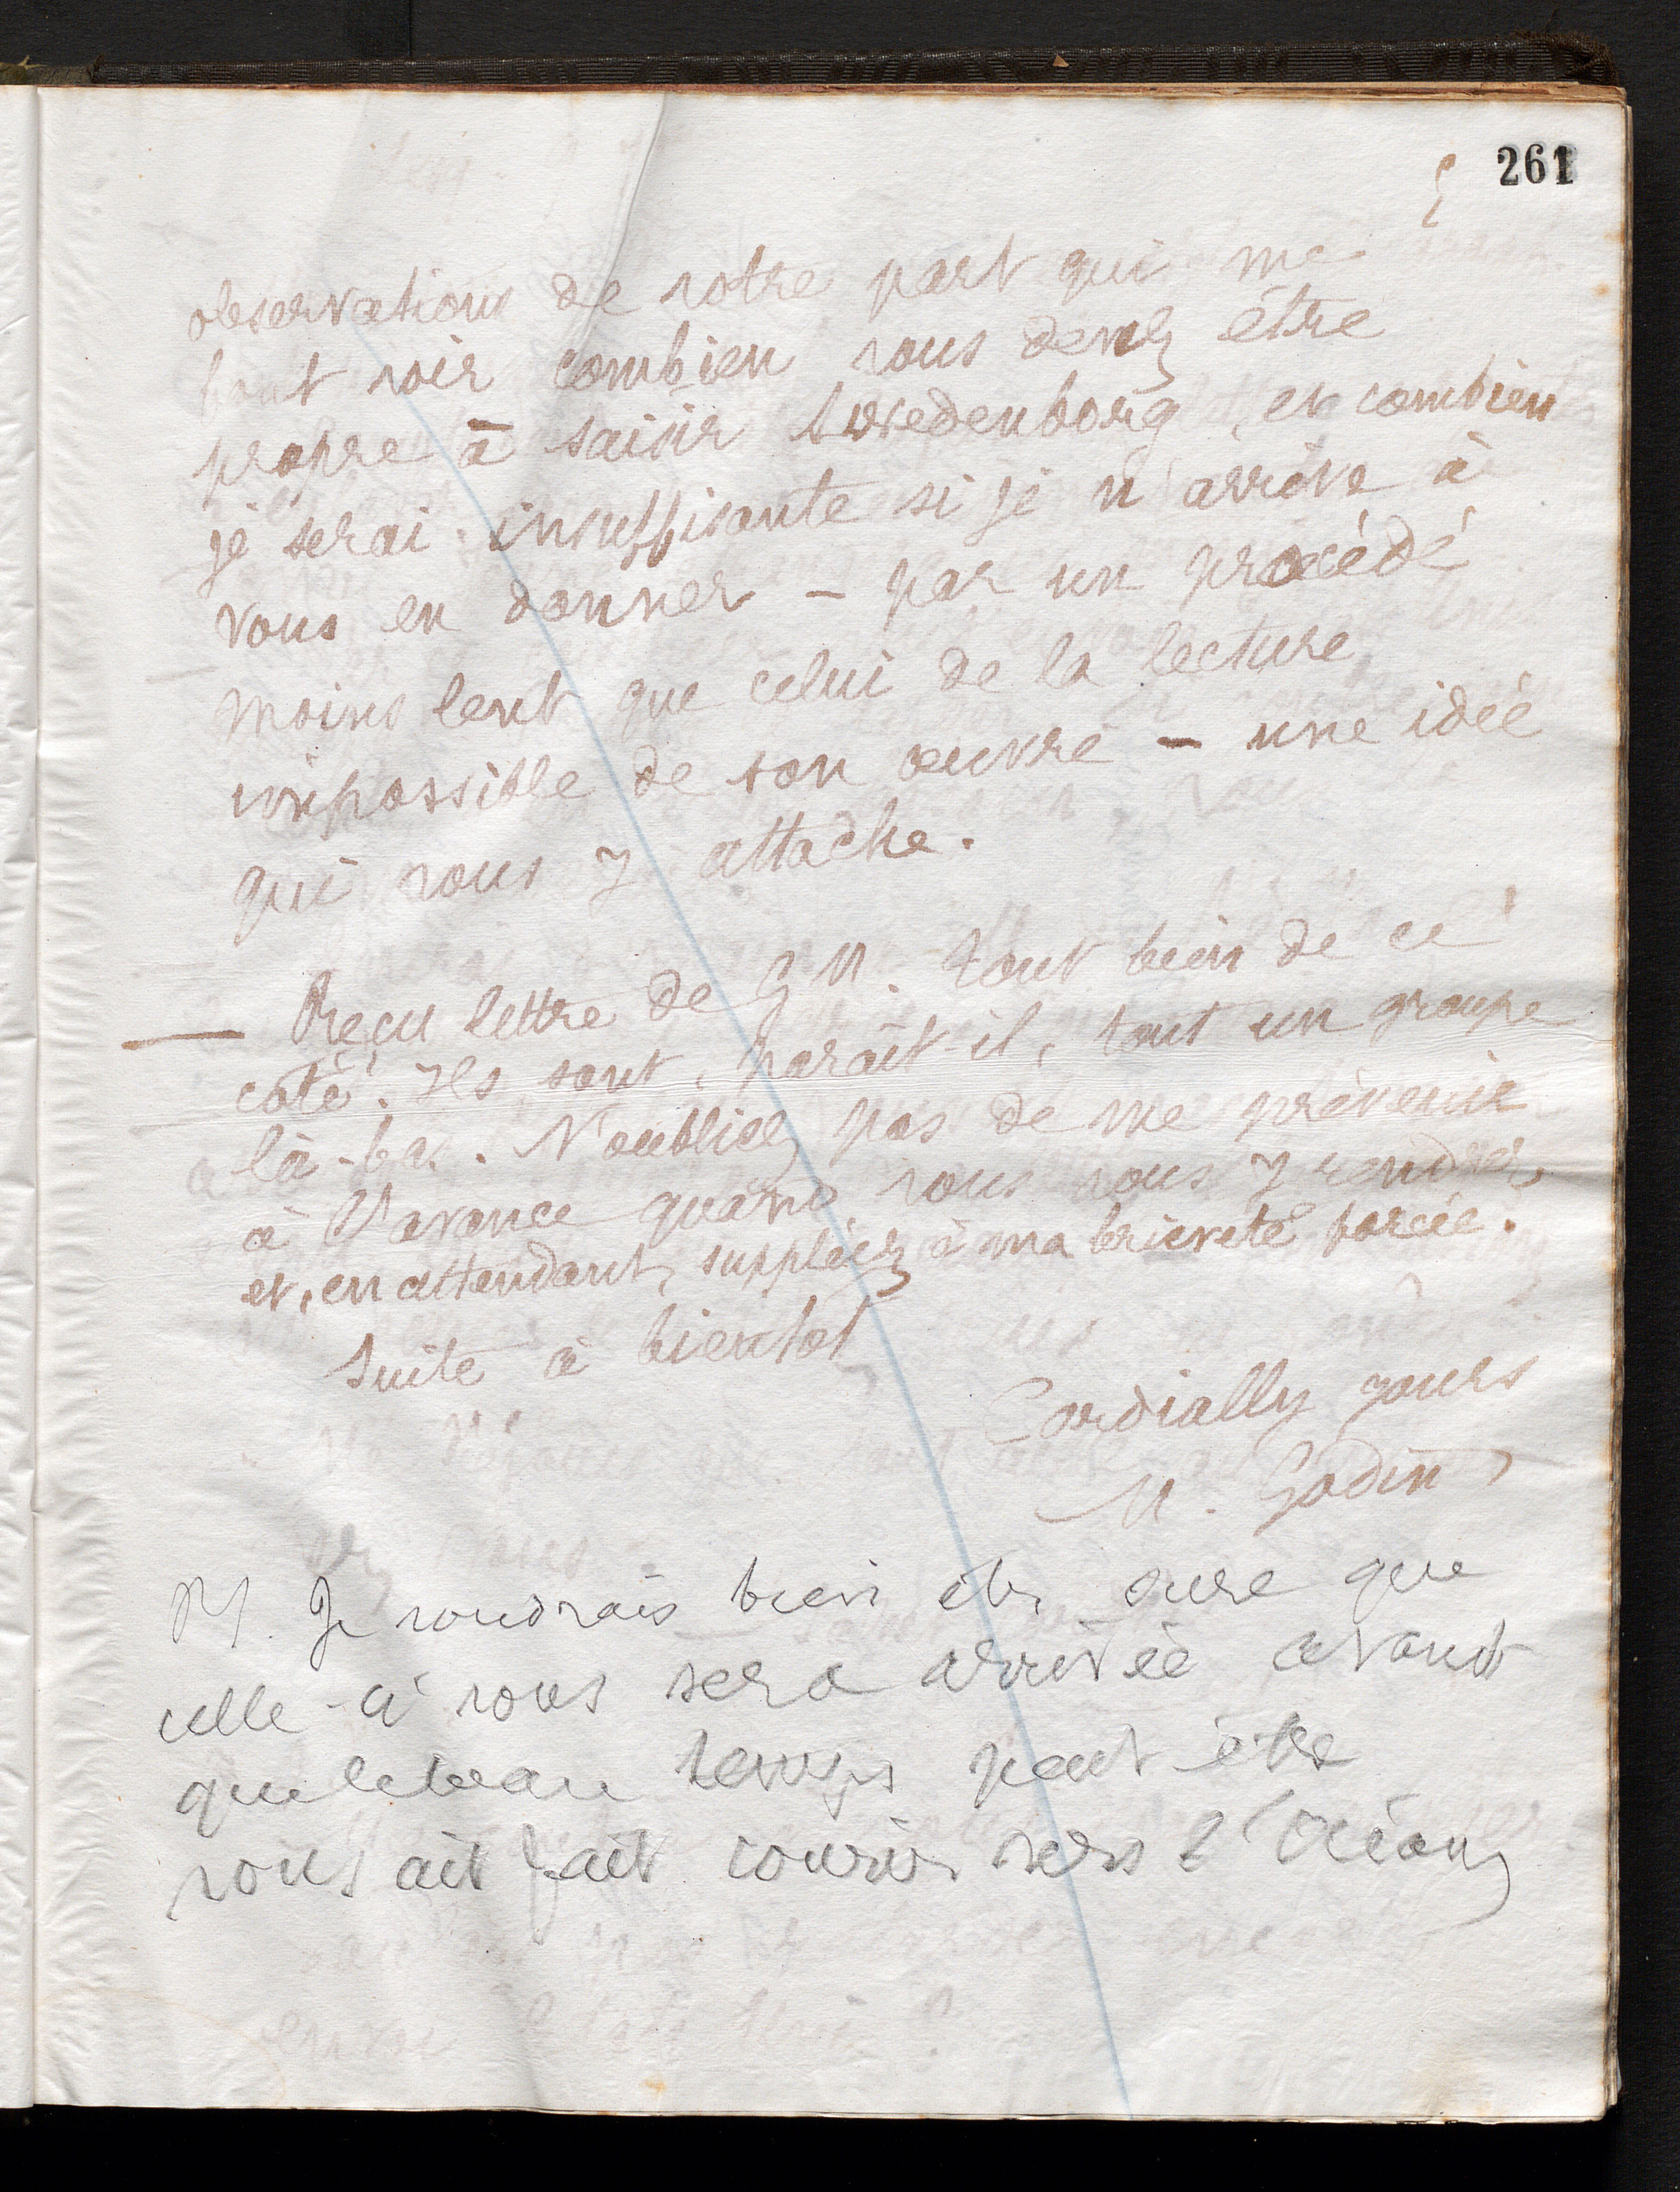 261
observations de votre part qui me
font voir combien vous devez être
propre à saisir Swedenborg, et combien
je serai insuffisante si je n'arrive à
vous en donner – par un procédé
moins lent que celui de la lecture
impossible de son œuvre – une idée
qui vous y attache.
— Reçu lettre de G M. tout bien de ce
côté. Ils sont, paraît-il, tout un groupe
là-bas. N'oubliez pas de me prévenir
à l'avance quand vous vous y rendrez,
et, en attendant, suppléez à ma brièveté forcée.
Suite à bientôt
Cordially yours
M. Godin
PS. Je voudrais bien être sure que
celle-ci vous sera arrivée avant
que le beau temps peut être
vous ait fait courir vers l'Océan